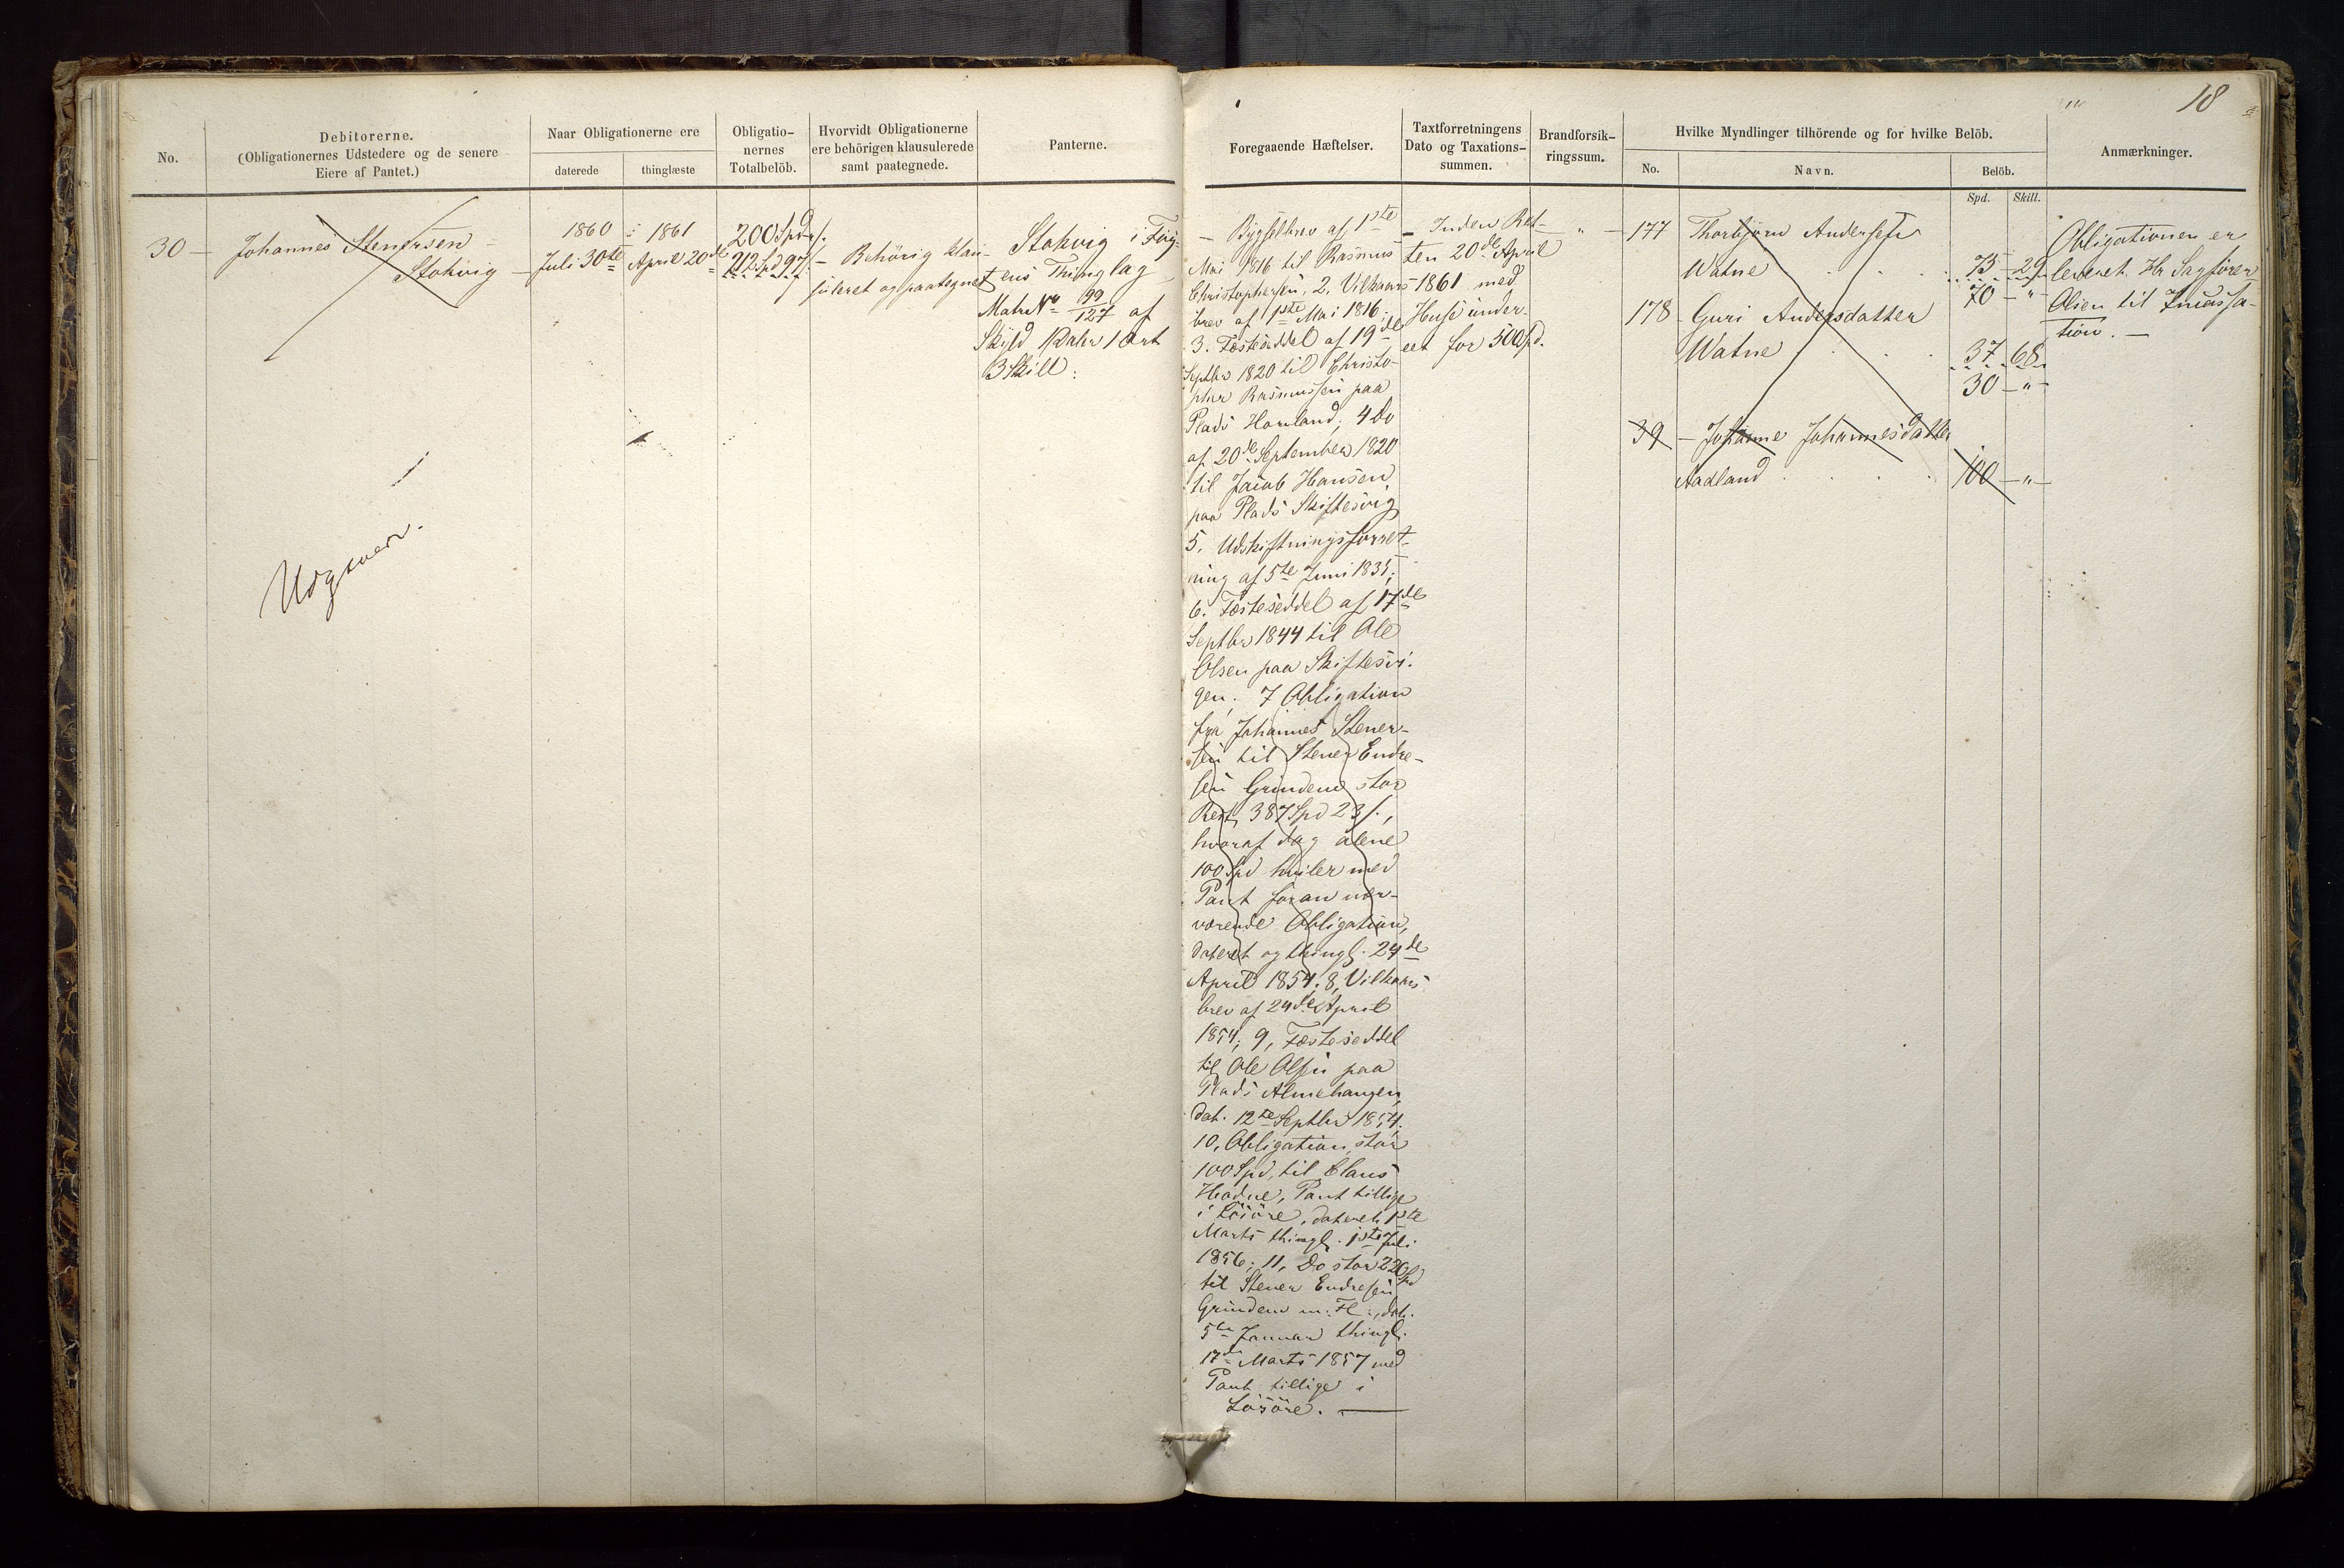 18
No.
Debitorerne.
(Obligationernes Udstedere og de senere
Eiere af Pantet.)
Naar Obligationerne ere
daterede
thinglæste
Obligatio-
nernes
Totalbelöb.
Hvorvidt Obligationerne
ere behörigen klausulerede
samt paategnede.
Panterne.
Foregaaende Hæftelser.
Taxtforretningens
Dato og Taxations-
summen.
Brandforsik-
ringssum.
Hvilke Myndlinger tilhörende og for hvilke Belöb.
No.
Navn.
Belöb.
Spd.
Skill.
Anmærkninger.
30 — Johannes Stenersen –
Stokvig –
1860
Juli 30te
1861
April 20de
200 Spd
212 Spd 97
– Behörig klau-
suleret og paategnet
Stokvig i
ens Thinglag
Matr No 99/127 af
Skyld 1 Ort
3 Skill:
Udgaaer.
– Bygselbrev af 1ste
Mai 1816 til Rasmus
Christophersen, 2. Vilkaars-
brev af 1ste Mai 1816.
3. Fæsteseddel af 19de
Septbr 1820 til Christo-
pher Rasmussen paa
Plads Havland, 4 Do
af 20de September 1820
til Jacob Hansen
paa Plads Skiftesvig
5. Udskiftningsforret-
ning af 5te Juni 1835;
6. Fæsteseddel af 17de
Septbr 1844 til Ole
Olsen paa Skiftesvi-
gen; 7 Obligation
fra Johannes Stener-
sen til Stener Endre-
sen Grindem stor
Rest 387 Spd 23 s.,
hvoraf dog alene
100 Spd hviler med
Pant foran nær-
værende Obligation,
dateret og thingl. 24de
April 1854. 8, Vilkaars
brev af 24de April
1854; 9, Fæsteseddel
til Ole Olsen paa
Plads Almehaugen,
dat. 12te Septbr 1854.
10, Obligation, stor
100 Spd, til Claus
Hadne, Pant tillige
i Lösöre, dateret 1ste
Marts thingl. 1ste Juli
1856; 11, Do stor 220 Spd
til Stener Endresen
Grindem m: Fl:, dat.
5te Januar thingl.
17de Marts 1857 med
Pant tillige i
Lösöre. —
– Inden Ret-
ten 20de April
1861 med
Huse under-
eet for 500 Spd.
— „ —
177 Thorbjörn Andersen
Watne . . . 75 . 29
70 – „ –
178 – Guri Andersdatter
Watne . . . 37 . 68
30 – „ –
39 – Johanne Johannesdatter
Aadland . . . 100 – „ –
Obligationen er
leveret Hr Sagförer
Olsen til Incassa-
tion. —